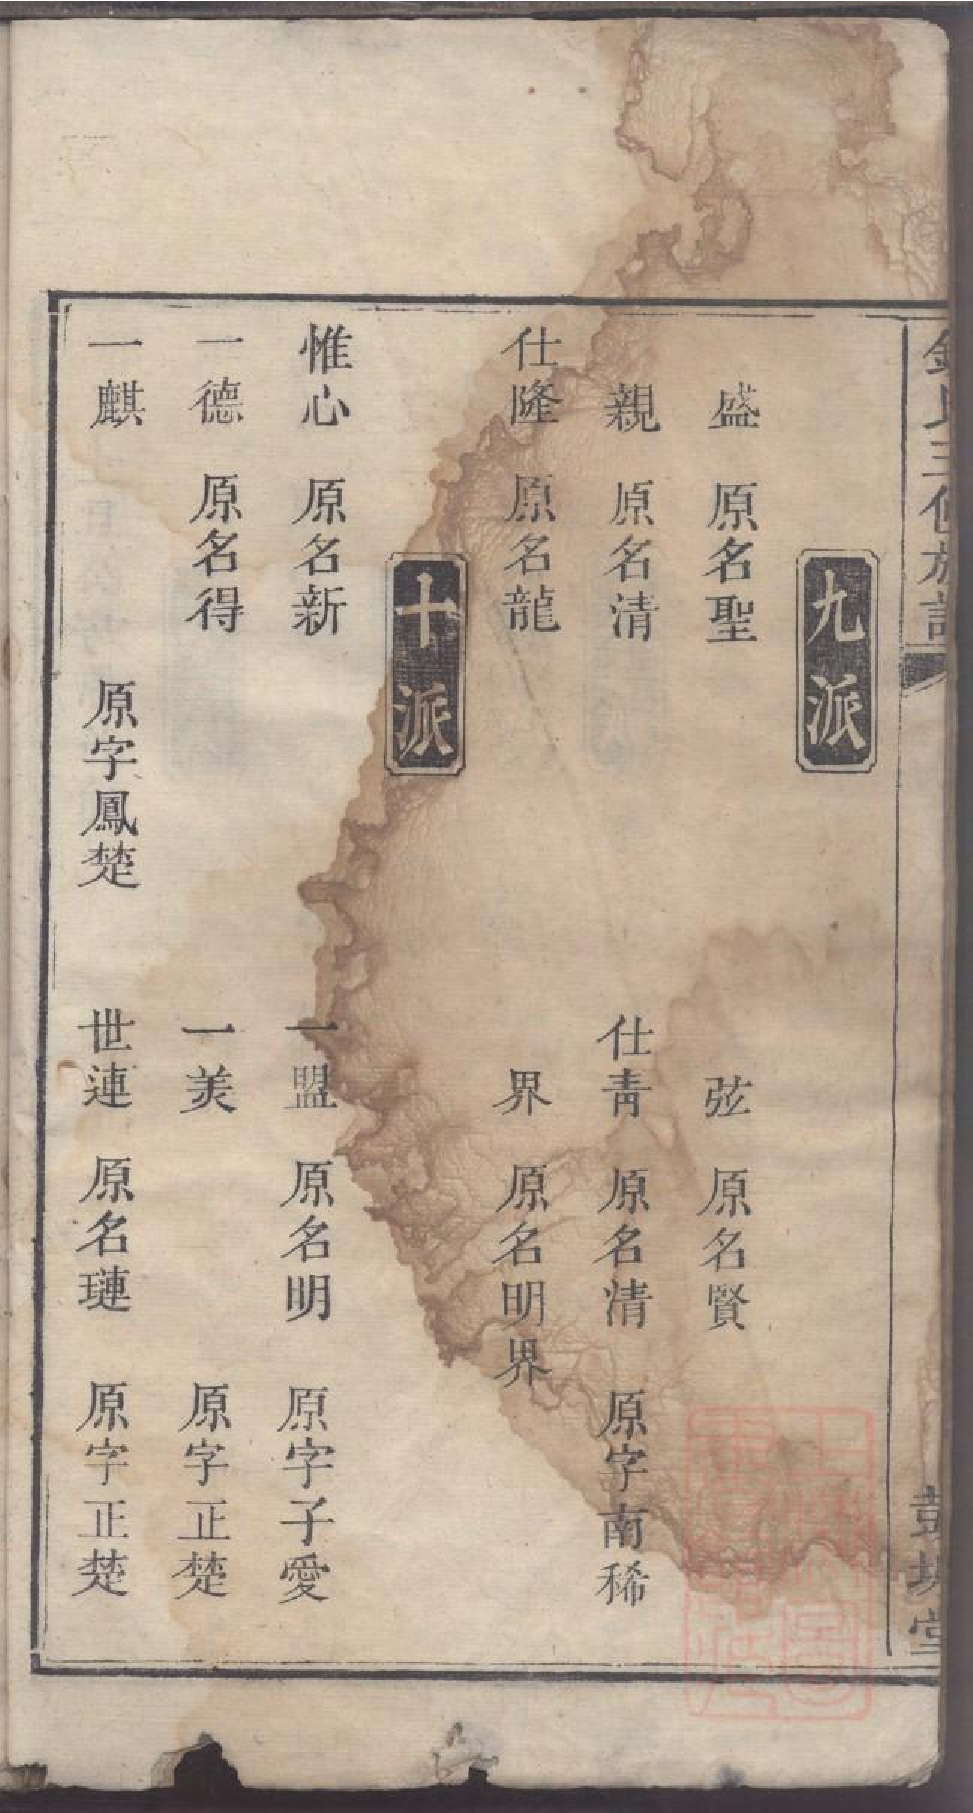 九派
盛 原名聖 弦 原名賢
親 原名清 仕青 原名清 原字南稀
仕隆 原名龍 界 原名明界
十派
惟心 原名新 一盟 原名明 原字子愛
一德 原名得 一美 原字正楚
一麒 原字鳳楚 世連 原名璉 原字正楚